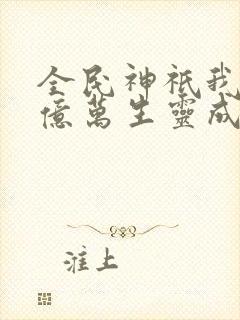 全民神祇我
億萬生靈成
淮上